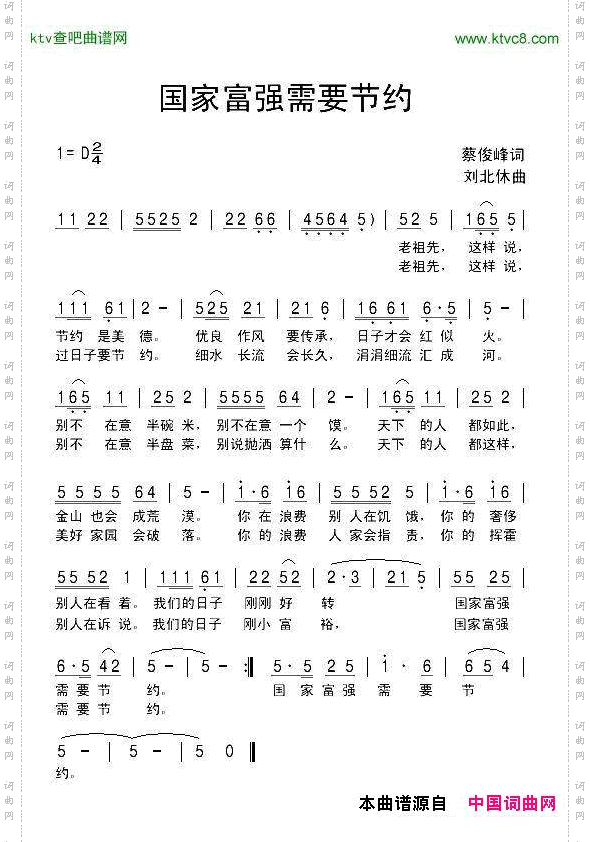 ktv查吧曲谱网 www.ktvc8.com
国家富强需要节约
1= D 2/4 蔡俊峰词
刘北休曲
11 22 | 5525 2 | 22 66 | 4564 5) | 52 5 | 165 5 |
老祖先， 这样 说，
老祖先， 这样 说，
111 61 | 2 - | 525 21 | 21 6 | 16 61 6·5 | 5 - |
节约 是美 德。 优良 作风 要传承， 日子才会 红 似 火。
过日子要节 约。 细水 长流 会长久， 涓涓细流 汇 成 河。
165 11 | 25 2 | 5555 64 | 2 - | 165 11 | 25 2 |
别不 在意 半碗 米， 别不在意 一个 馍。 天下 的人 都如此，
别不 在意 半盘 菜， 别说抛洒 算什 么。 天下 的人 都这样，
5 5 5 5 64 | 5 - | 1·6 16 | 5552 52 | 1·6 16 |
金山 也会 成荒 漠。 你 在 浪费 别 人在饥 饿， 你 的 奢侈
美好 家园 会破 落。 你 的 浪费 人 家会指 责， 你 的 挥霍
55 52 1 | 111 61 | 22 52 | 2·3 | 21 5 | 55 25 |
别人在看 着。 我们的日子 刚刚 好 转 国家富强
别人在诉 说。 我们的日子 刚小 富 裕， 国家富强
6·5 42 | 5 - | 5 - :‖ 5·5 2 5 | 1·6 | 6 5 4 |
需 要 节 约。 国 家富强 需 要 节
需 要 节 约。
5 - | 5 - | 5 0 ‖
约。
本曲谱源自 中国词曲网